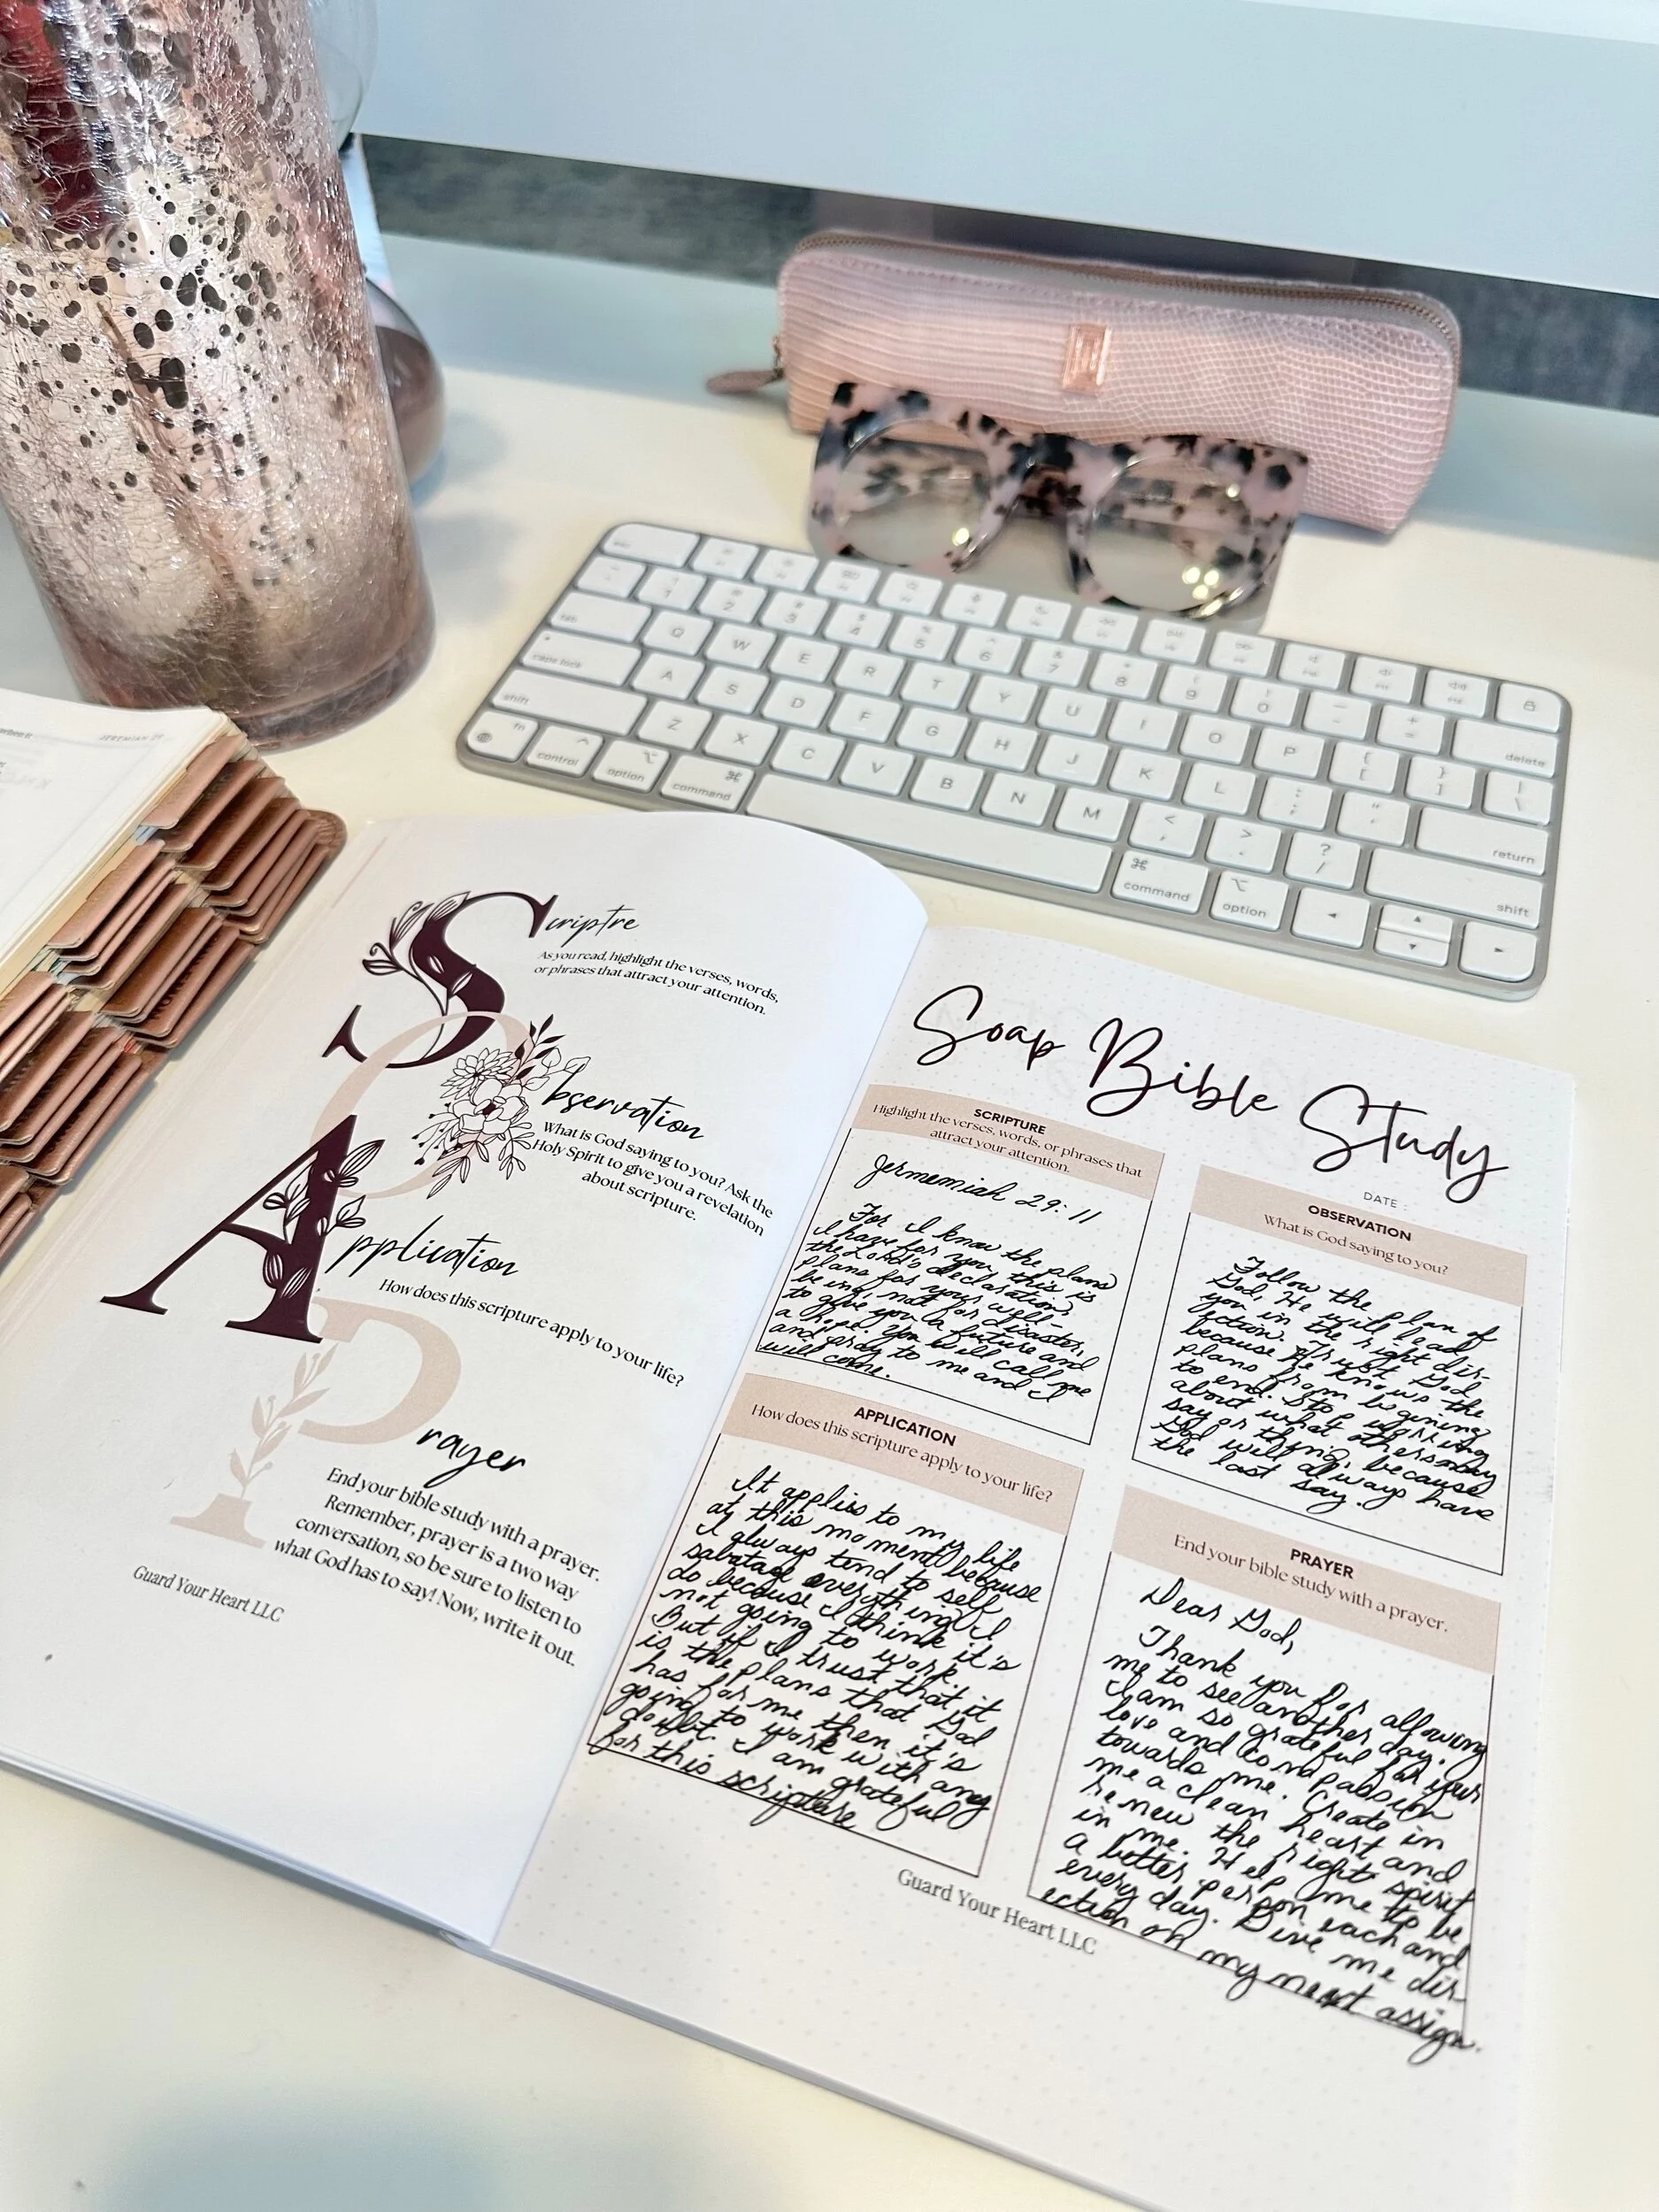 JEREMIAH 29
Scriptre
As you read, highlight the verses, words,
or phrases that attract your attention.
Observation
What is God saying to you? Ask the
Holy Spirit to give you a revelation
about scripture.
Application
How does this scripture apply to your life?
Prayer
End your bible study with a prayer.
Remember, prayer is a two way
conversation, so be sure to listen to
what God has to say! Now, write it out.
Guard Your Heart LLC
Soap Bible Study
DATE :
SCRIPTURE
Highlight the verses, words, or phrases that
attract your attention.
Jermemiah 29:11
For I know the plans
I have for you, this is
the Lord's declaration,
plans for your well-
being, not for disaster,
to give you a future and
a hope. You will call me
and pray to me and I
will come.
OBSERVATION
What is God saying to you?
Follow the plan of
God, He will lead
you in the right dir-
ection. Trust God
because He knows the
plans from begining
to end. Stop worrying
about what others may
say or thing, because
God will always have
the last say.
APPLICATION
How does this scripture apply to your life?
It applies to my life
at this moment because
I always tend to self
sabatage everything I
do because I think it's
not going to work.
But if I trust that it
is the plans that God
has for me then it's
going to work with any
doubt. I am grateful
for this scripture
PRAYER
End your bible study with a prayer.
Dear God,
Thank you for allowing
me to see another day.
I am so grateful for your
love and compassion
towards me. Create in
me a clean heart and
renew the right spirit
in me. Help me to be
a better person each and
every day. Give me dir-
ection on my next assign.
Guard Your Heart LLC
tab
caps lock
shift
fn
control
option
command
1
2
3
4
5
6
7
8
9
0
Q W E R T Y U I O P
A S D F G H J K L
Z X C V B N M
delete
return
shift
command
option